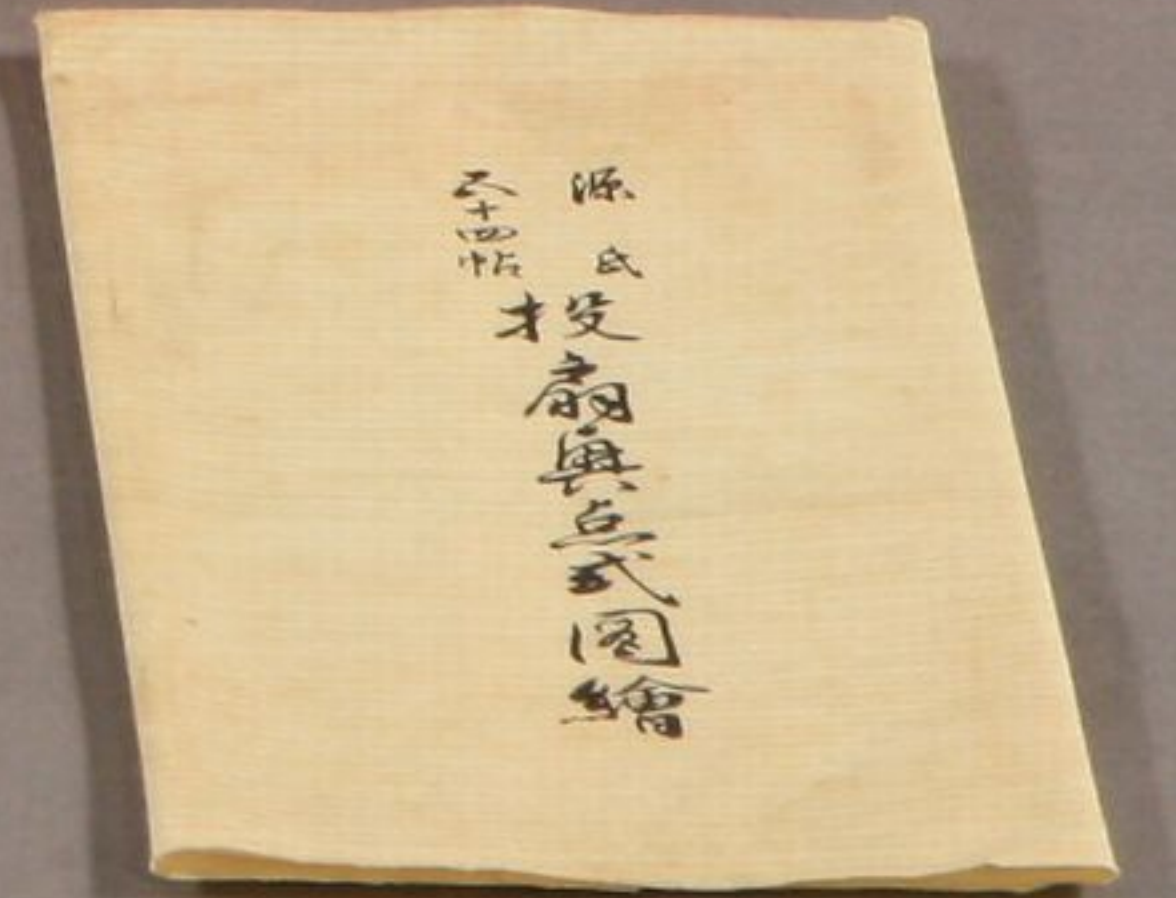 源氏
五十四帖
投扇興点式図繪